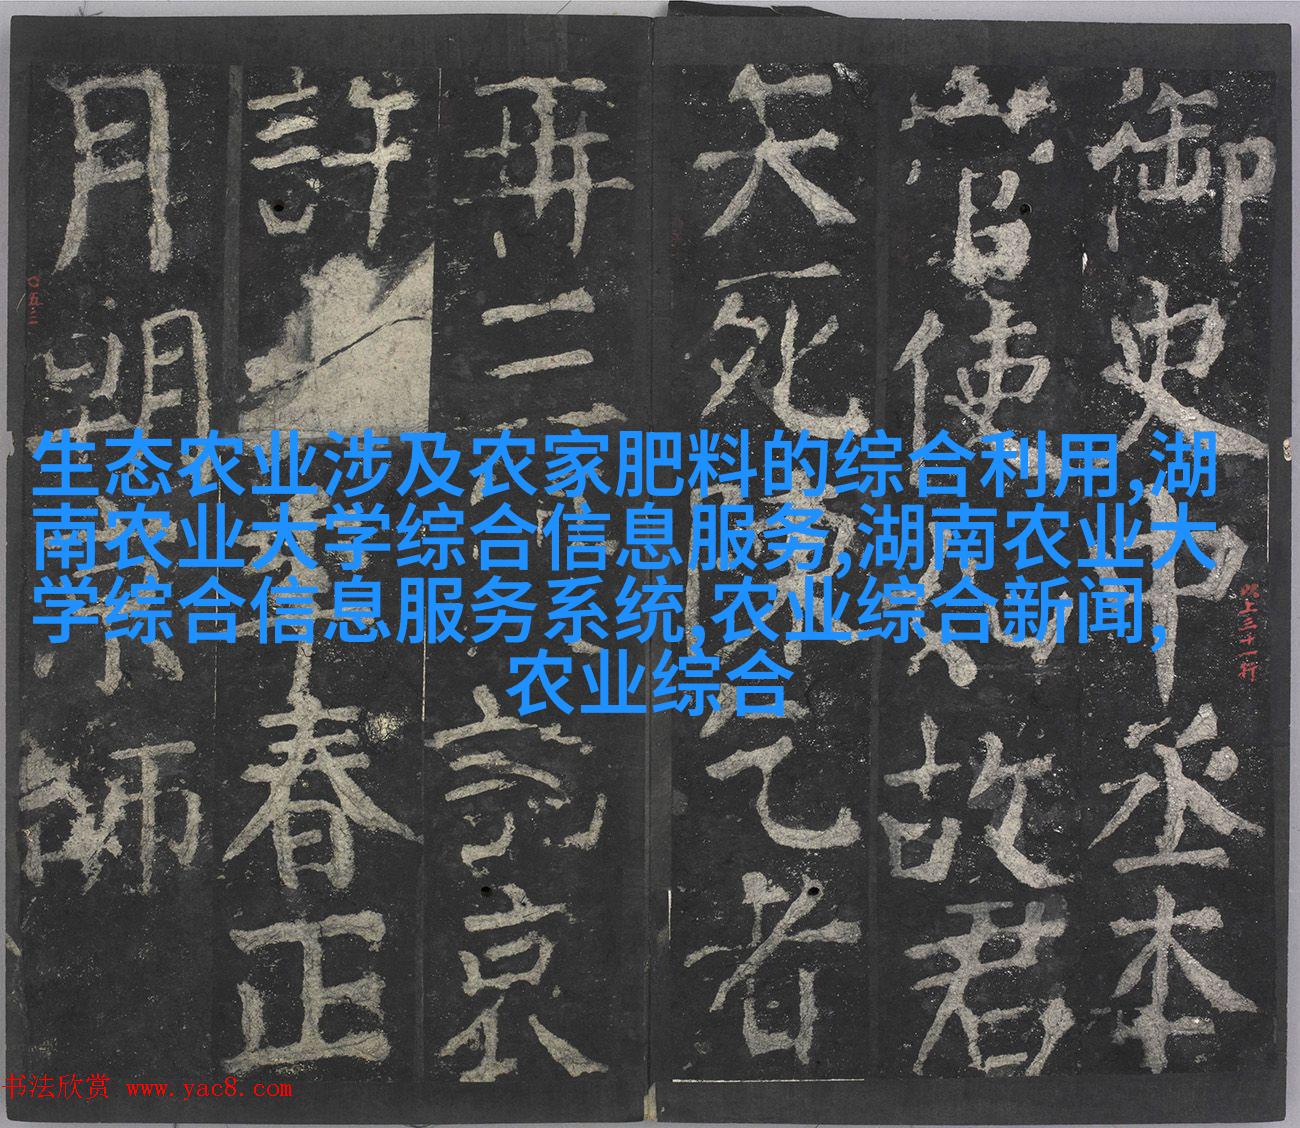 生态农业涉及农家肥料的综合利用,湖
南农业大学综合信息服务,湖南农业大
学综合信息服务系统,农业综合新闻,
农业综合
御史中丞本
官使如故君
矢死陳乞者
再三 京
許 春正
月朔京師
此上三十一行
〇五三
书法欣赏 www.yac8.com